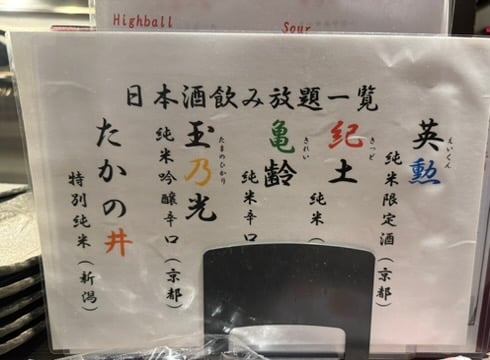 Highball
Sour
日本酒飲み放題一覧
英勲
えいくん
純米限定酒(京都)
紀土
きっど
純米(
亀齢
きれい
純米辛口
玉乃光
たまのひかり
純米吟醸辛口(京都)
たかの井
特別純米(新潟)